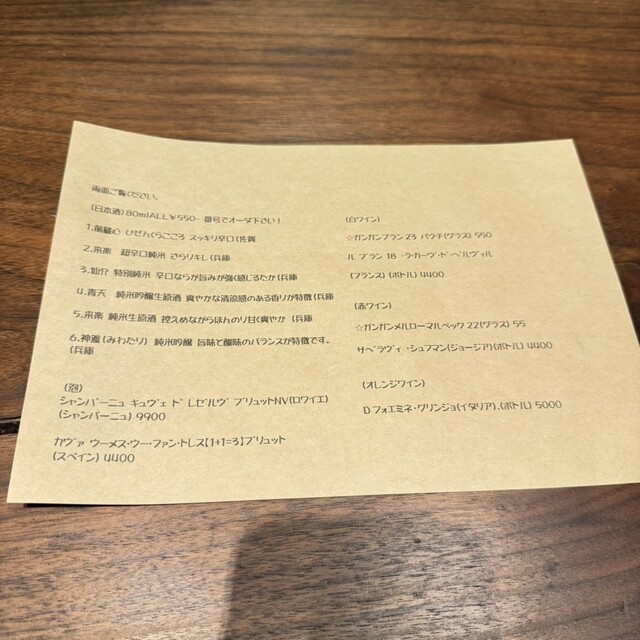 両面ご覧ください。
(日本酒)80mlALL¥550- 番号でオーダ下さい!
1.前蔵心 ひぜんくらごころ スッキリ辛口(佐賀
2.来楽 超辛口純米 さらりキレ(兵庫
3.仙介 特別純米 辛口ながら旨みが強く感じるたか(兵庫
4.青天 純米吟醸生原酒 爽やかな清涼感のある香りが特徴(兵庫
5.来楽 純米生原酒 控えめながらほんのり甘く爽やか (兵庫
6.神渡(みわたり) 純米吟醸 旨味と酸味のバランスが特徴です。
(兵庫
(泡)
シャンパーニュ キュヴェ ド レゼルヴ ブリュットNV(ロワイエ)
(シャンパーニュ) 9900
カヴァ ウーメス・ウー・ファン・トレス【1+1=3】ブリュット
(スペイン) 4400
(白ワイン)
☆ガンガンブラン23 パウチ(グラス) 550
ル ブラン 18 ・ラ・カーヴ・ド・ベルヴィル
(フランス) (ボトル) 4400
(赤ワイン)
☆ガンガンメルローマルベック 22(グラス) 55
サペラヴィ ・シュフマン(ジョージア)(ボトル) 4400
(オレンジワイン)
D フォエミネ・グリンジョ(イタリア)、(ボトル) 5000